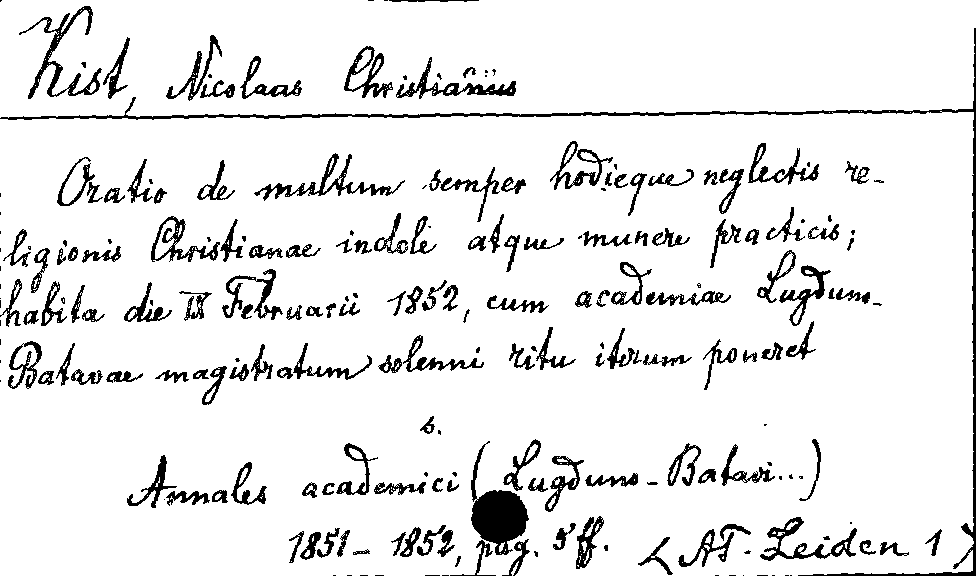 Kist, Nicolaas Christianus
Oratio de multum semper hodieque neglectis re-
ligionis Christianae indole atque munere practicis;
habita die IX Februarii 1852, cum academiae Lugduno-
Batavae magistratum solenni ritu iterum poneret
s.
Annales academici (Lugduno-Batavi...)
1851-1852, pag. 5 ff. <AT-Leiden 1>